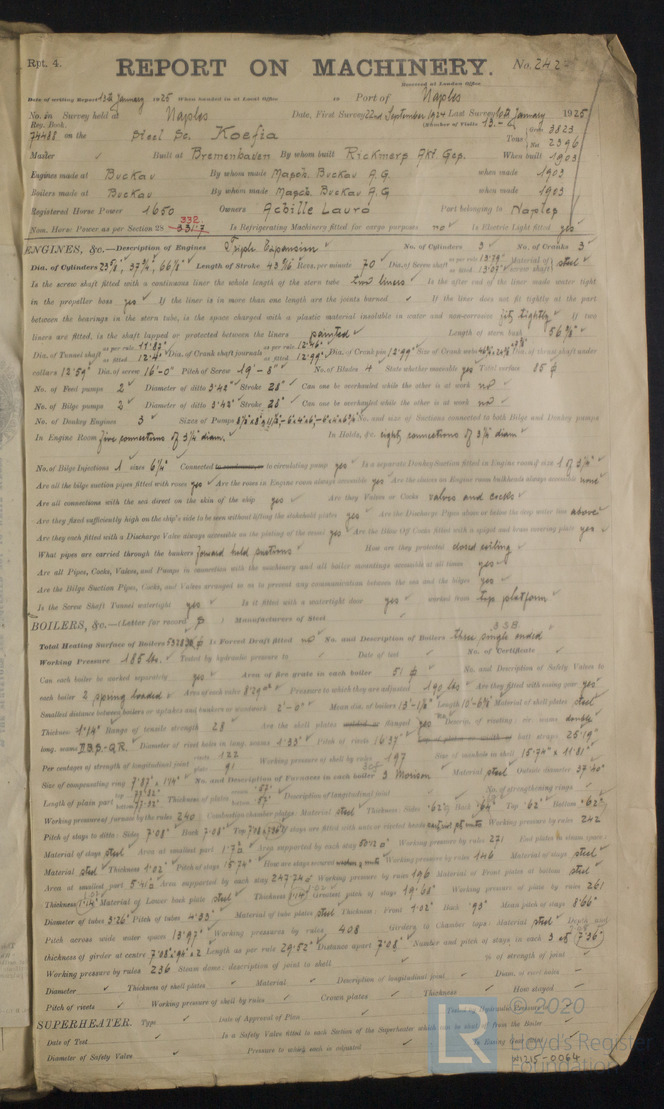 Rpt. 4.
REPORT ON MACHINERY.
No. 242
Received at London Office
Date of writing Report 13th January 1925 When handed in at Local Office 19 Port of Naples
No. in Survey held at Naples Date, First Survey 22nd September 1924 Last Survey 10th January 1925
Reg. Book. (Number of Visits 13.
74488 on the Steel Sc. Koefia Tons Gross 3823 Net 2396
Master Built at Bremenhaven By whom built Rickmers Akt. Ges. When built 1903
Engines made at Buckau By whom made Masch. Buckau A.G. when made 1903
Boilers made at Buckau By whom made Masch. Buckau A.G. when made 1903
Registered Horse Power 1650 Owners Achille Lauro Port belonging to Naples
Nom. Horse Power as per Section 28 332 331.7 Is Refrigerating Machinery fitted for cargo purposes no Is Electric Light fitted yes
ENGINES, &c.—Description of Engines Triple Expansion No. of Cylinders 3 No. of Cranks 3
Dia. of Cylinders Length of Stroke Revs. per minute 70 Dia. of Screw shaft as per rule 13.79" as fitted 13.07" Material of screw shaft steel
Is the screw shaft fitted with a continuous liner the whole length of the stern tube two liners Is the after end of the liner made water tight
in the propeller boss yes If the liner is in more than one length are the joints burned If the liner does not fit tightly at the part
between the bearings in the stern tube, is the space charged with a plastic material insoluble in water and non-corrosive fits tightly If two
liners are fitted, is the shaft lapped or protected between the liners painted Length of stern bush 56
Dia. of Tunnel shaft as per rule 11.82" as fitted Dia. of Crank shaft journals as per rule 12.46" as fitted 12.99" Dia. of Crank pin 12.99" Size of Crank webs Dia. of thrust shaft under
collars 12.59" Dia. of screw 16'-0" Pitch of Screw 19'-8" No. of Blades 4 State whether moveable yes Total surface 85
No. of Feed pumps 2 Diameter of ditto 3.42" Stroke 28" Can one be overhauled while the other is at work no
No. of Bilge pumps 2 Diameter of ditto 3.42" Stroke 28" Can one be overhauled while the other is at work no
No. of Donkey Engines 3 Sizes of Pumps No. and size of Suctions connected to both Bilge and Donkey pumps
In Engine Room five connections of 3½" diam. In Holds, &c. eighty connections of 3½" diam
No. of Bilge Injections 1 sizes Connected to circulating pump yes Is a separate Donkey Suction fitted in Engine room & size 1 of 3½"
Are all the bilge suction pipes fitted with roses yes Are the roses in Engine room always accessible yes Are the sluices on Engine room bulkheads always accessible none
Are all connections with the sea direct on the skin of the ship yes Are they Valves or Cocks valves and cocks
Are they fixed sufficiently high on the ship's side to be seen without lifting the stokehold plates yes Are the Discharge Pipes above or below the deep water line above
Are they each fitted with a Discharge Valve always accessible on the plating of the vessel yes Are the Blow Off Cocks fitted with a spigot and brass covering plate yes
What pipes are carried through the bunkers forward hold suctions How are they protected closed ceiling
Are all Pipes, Cocks, Valves, and Pumps in connection with the machinery and all boiler mountings accessible at all times yes
Are the Bilge Suction Pipes, Cocks, and Valves arranged so as to prevent any communication between the sea and the bilges yes
Is the Screw Shaft Tunnel watertight yes Is it fitted with a watertight door yes worked from top platform
BOILERS, &c.—(Letter for record ) Manufacturers of Steel
3 SB
Total Heating Surface of Boilers Is Forced Draft fitted no No. and Description of Boilers three single ended
Working Pressure 185 lbs. Tested by hydraulic pressure to Date of test No. of Certificate
Can each boiler be worked separately yes Area of fire grate in each boiler 51 No. and Description of Safety Valves to
each boiler 2 spring loaded Area of each valve Pressure to which they are adjusted 190 lbs Are they fitted with easing gear yes
Smallest distance between boilers or uptakes and bunkers or woodwork 2'-0" Mean dia. of boilers Length Material of shell plates steel
Thickness 1.14" Range of tensile strength 28 Are the shell plates welded or flanged yes Descrip. of riveting: cir. seams double
long. seams D.B.S-Q.R. Diameter of rivet holes in long. seams 1.33" Pitch of rivets 16.37" Lap of plates or width of butt straps 25.19"
Per centages of strength of longitudinal joint rivets 122 plate 91 Working pressure of shell by rules 197 Size of manhole in shell 15.74" x 11.81"
Size of compensating ring No. and Description of Furnaces in each boiler 3 Morison Material steel Outside diameter 37.40"
Length of plain part Thickness of plates Description of longitudinal joint No. of strengthening rings
Working pressure of furnace by the rules 240 Combustion chamber plates: Material steel Thickness: Sides .62" Back .64" Top .62" Bottom .62"
Pitch of stays to ditto: Sides 7.08" Back 7.08" Top If stays are fitted with nuts or riveted heads Working pressure by rules 242
Material of stays steel Area at smallest part Area supported by each stay Working pressure by rules 271 End plates in steam space:
Material steel Thickness 1.02" Pitch of stays 15.74" How are stays secured Working pressure by rules 146 Material of stays steel
Area at smallest part Area supported by each stay 247.74 Working pressure by rules 196 Material of Front plates at bottom steel
Thickness 1.14" Material of Lower back plate steel Thickness 1.14" Greatest pitch of stays 19.68" Working pressure of plate by rules 261
Diameter of tubes 3.26" Pitch of tubes 4.33" Material of tube plates steel Thickness: Front 1.02" Back .93" Mean pitch of stays 8.66"
Pitch across wide water spaces 13.97" Working pressures by rules 408 Girders to Chamber tops: Material steel Depth and
thickness of girder at centre Length as per rule 29.52" Distance apart 7.08" Number and pitch of stays in each 3 of 7.36"
Working pressure by rules 236 Steam dome: description of joint to shell % of strength of joint
Diameter Thickness of shell plates Material Description of longitudinal joint Diam. of rivet holes
Pitch of rivets Working pressure of shell by rules Crown plates Thickness How stayed
SUPERHEATER. Type Date of Approval of Plan Tested by Hydraulic Pressure to
Date of Test Is a Safety Valve fitted to each Section of the Superheater which can be shut off from the Boiler
Diameter of Safety Valve Pressure to which each is adjusted Is Easing Gear fitted
© 2020
LR
Lloyd's Register
Foundation
W1215-0064